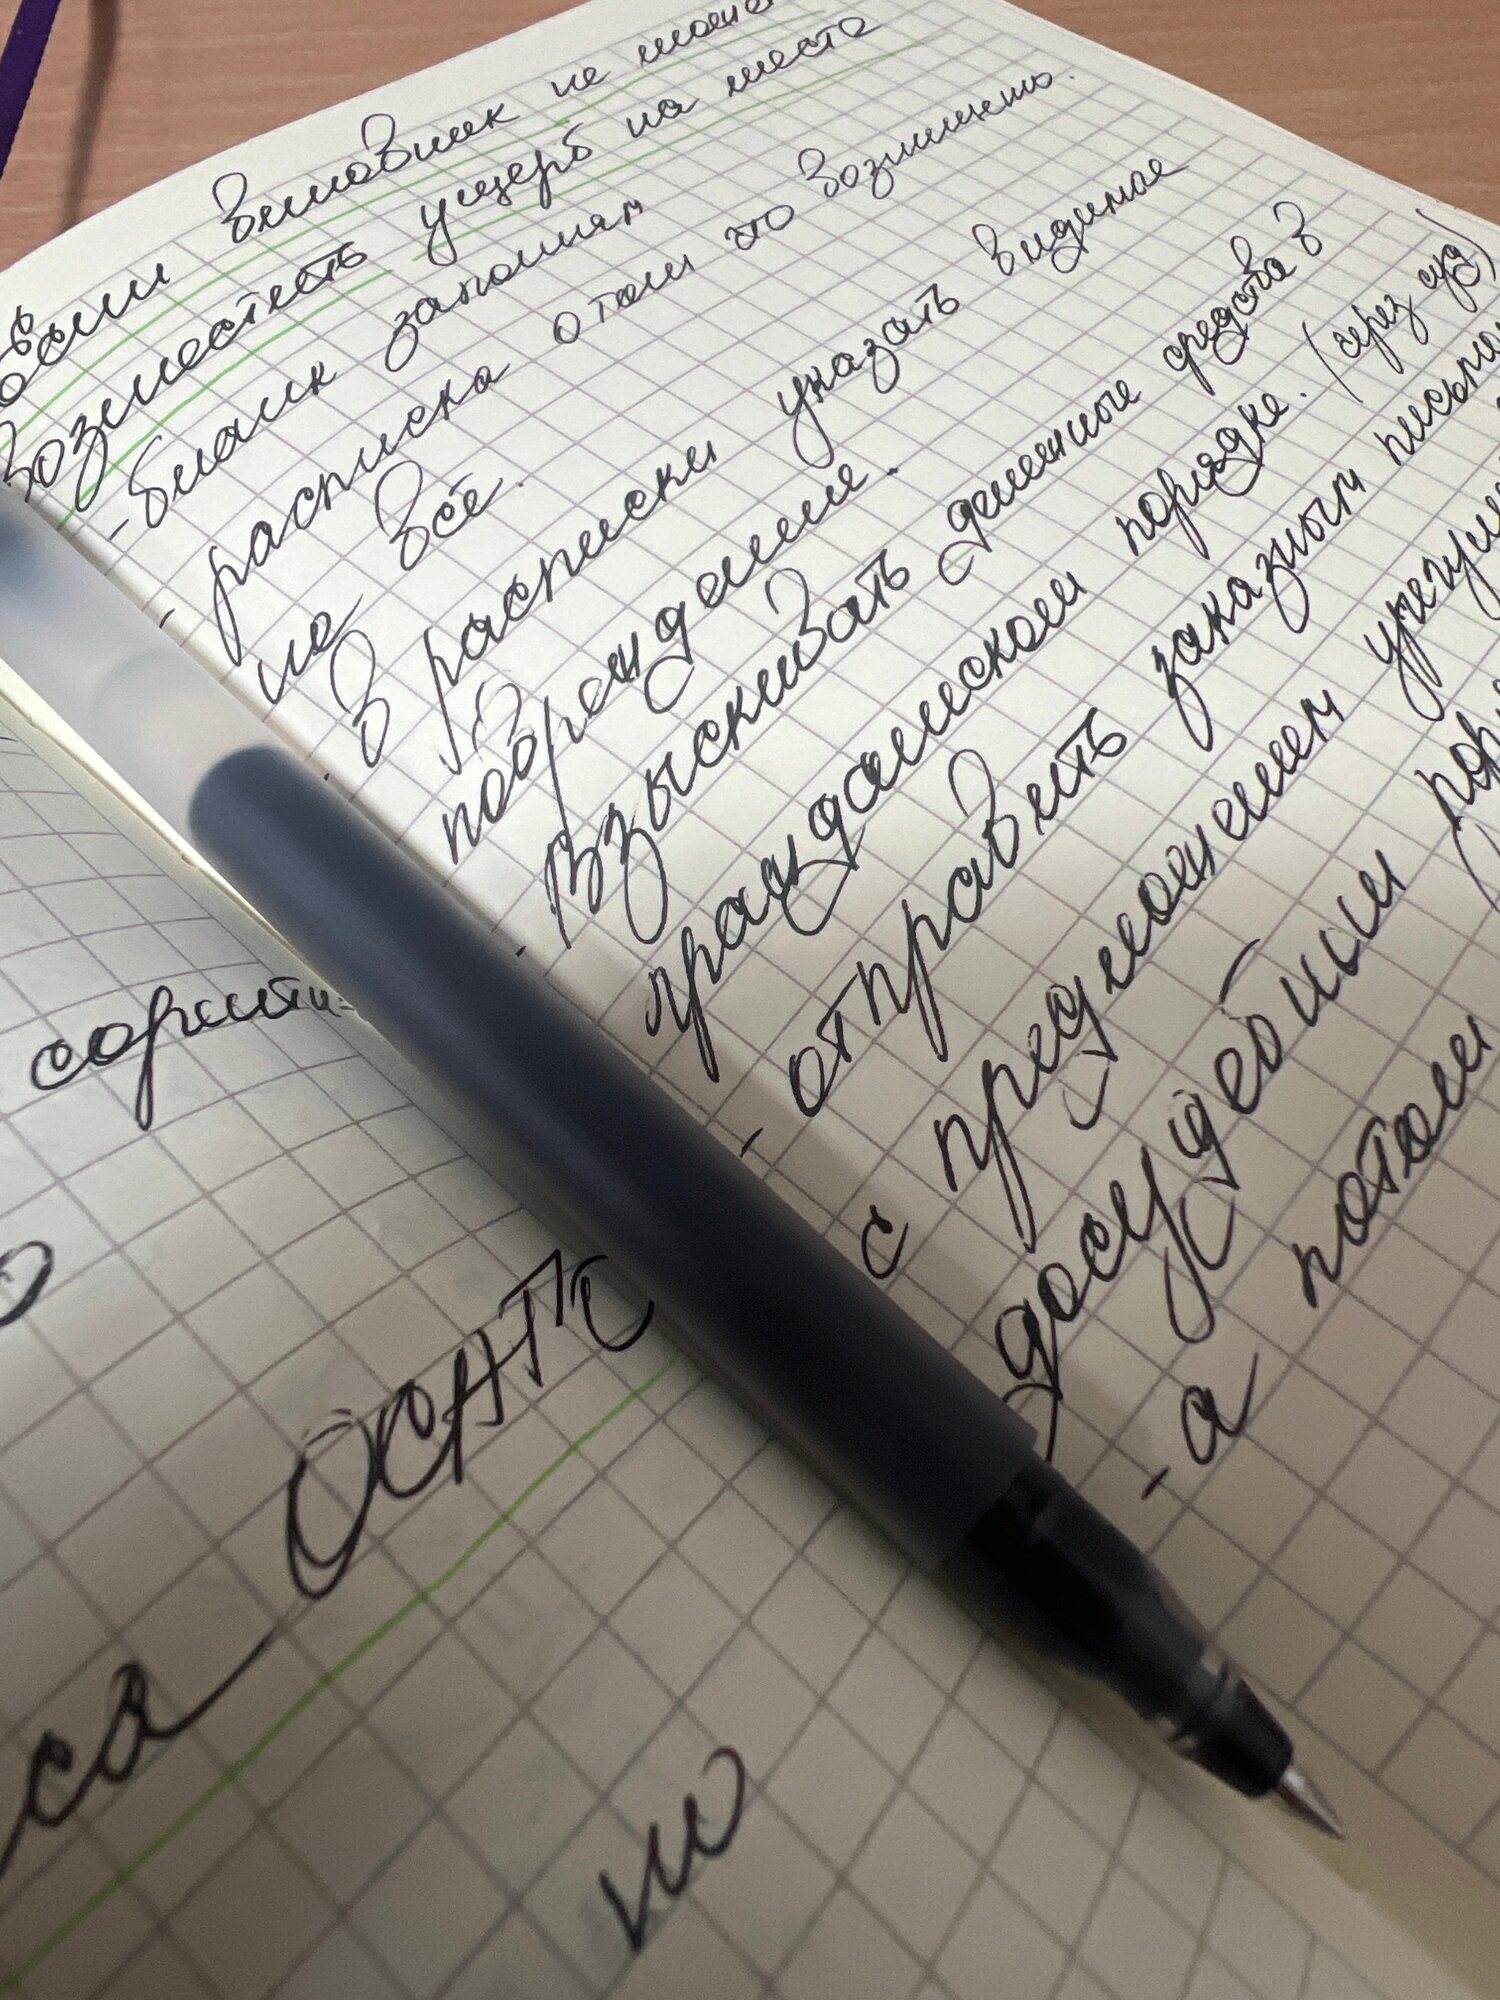 Если виновник не может
возместить ущерб на месте
- бланк заполняем
- расписка о том что возмещено.
на всё.
В расписки указать видимые
повреждение.
- Взыскивать денежные средства в
гражданском порядке. (через суд)
- отправить заказным письмом
с предложением урегули
досудебный пор
- а потом
сорити
ОСАГО
са
но